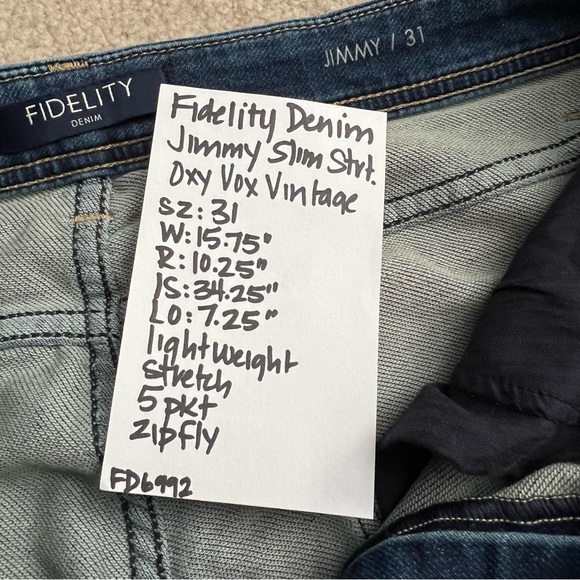 JIMMY / 31
FIDELITY
DENIM
Fidelity Denim
Jimmy Slim Strt.
Oxy Vox Vintage
SZ: 31
W: 15.75"
R: 10.25"
IS: 34.25"
LO: 7.25"
lightweight
stretch
5 pkt
zip fly
FD6992